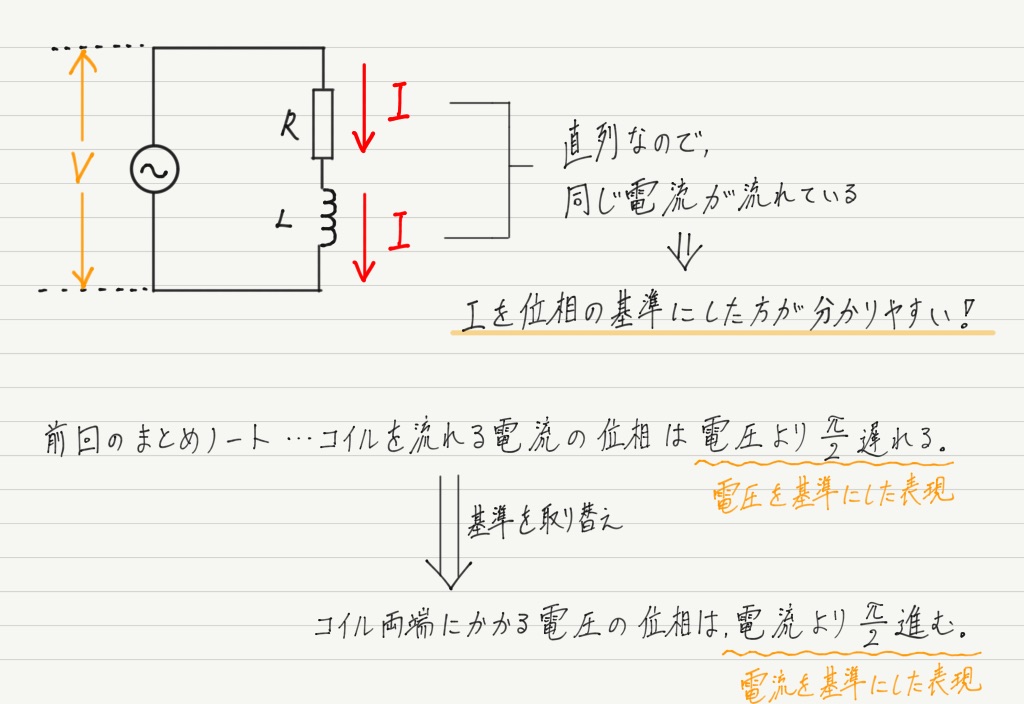 V
R
I
L
I
直列なので、
同じ電流が流れている
⇓
Iを位相の基準にした方が分かりやすい!
前回のまとめノート…コイルを流れる電流の位相は電圧よりπ/2遅れる。
電圧を基準にした表現
基準を取り替え
コイル両端にかかる電圧の位相は、電流よりπ/2進む。
電流を基準にした表現